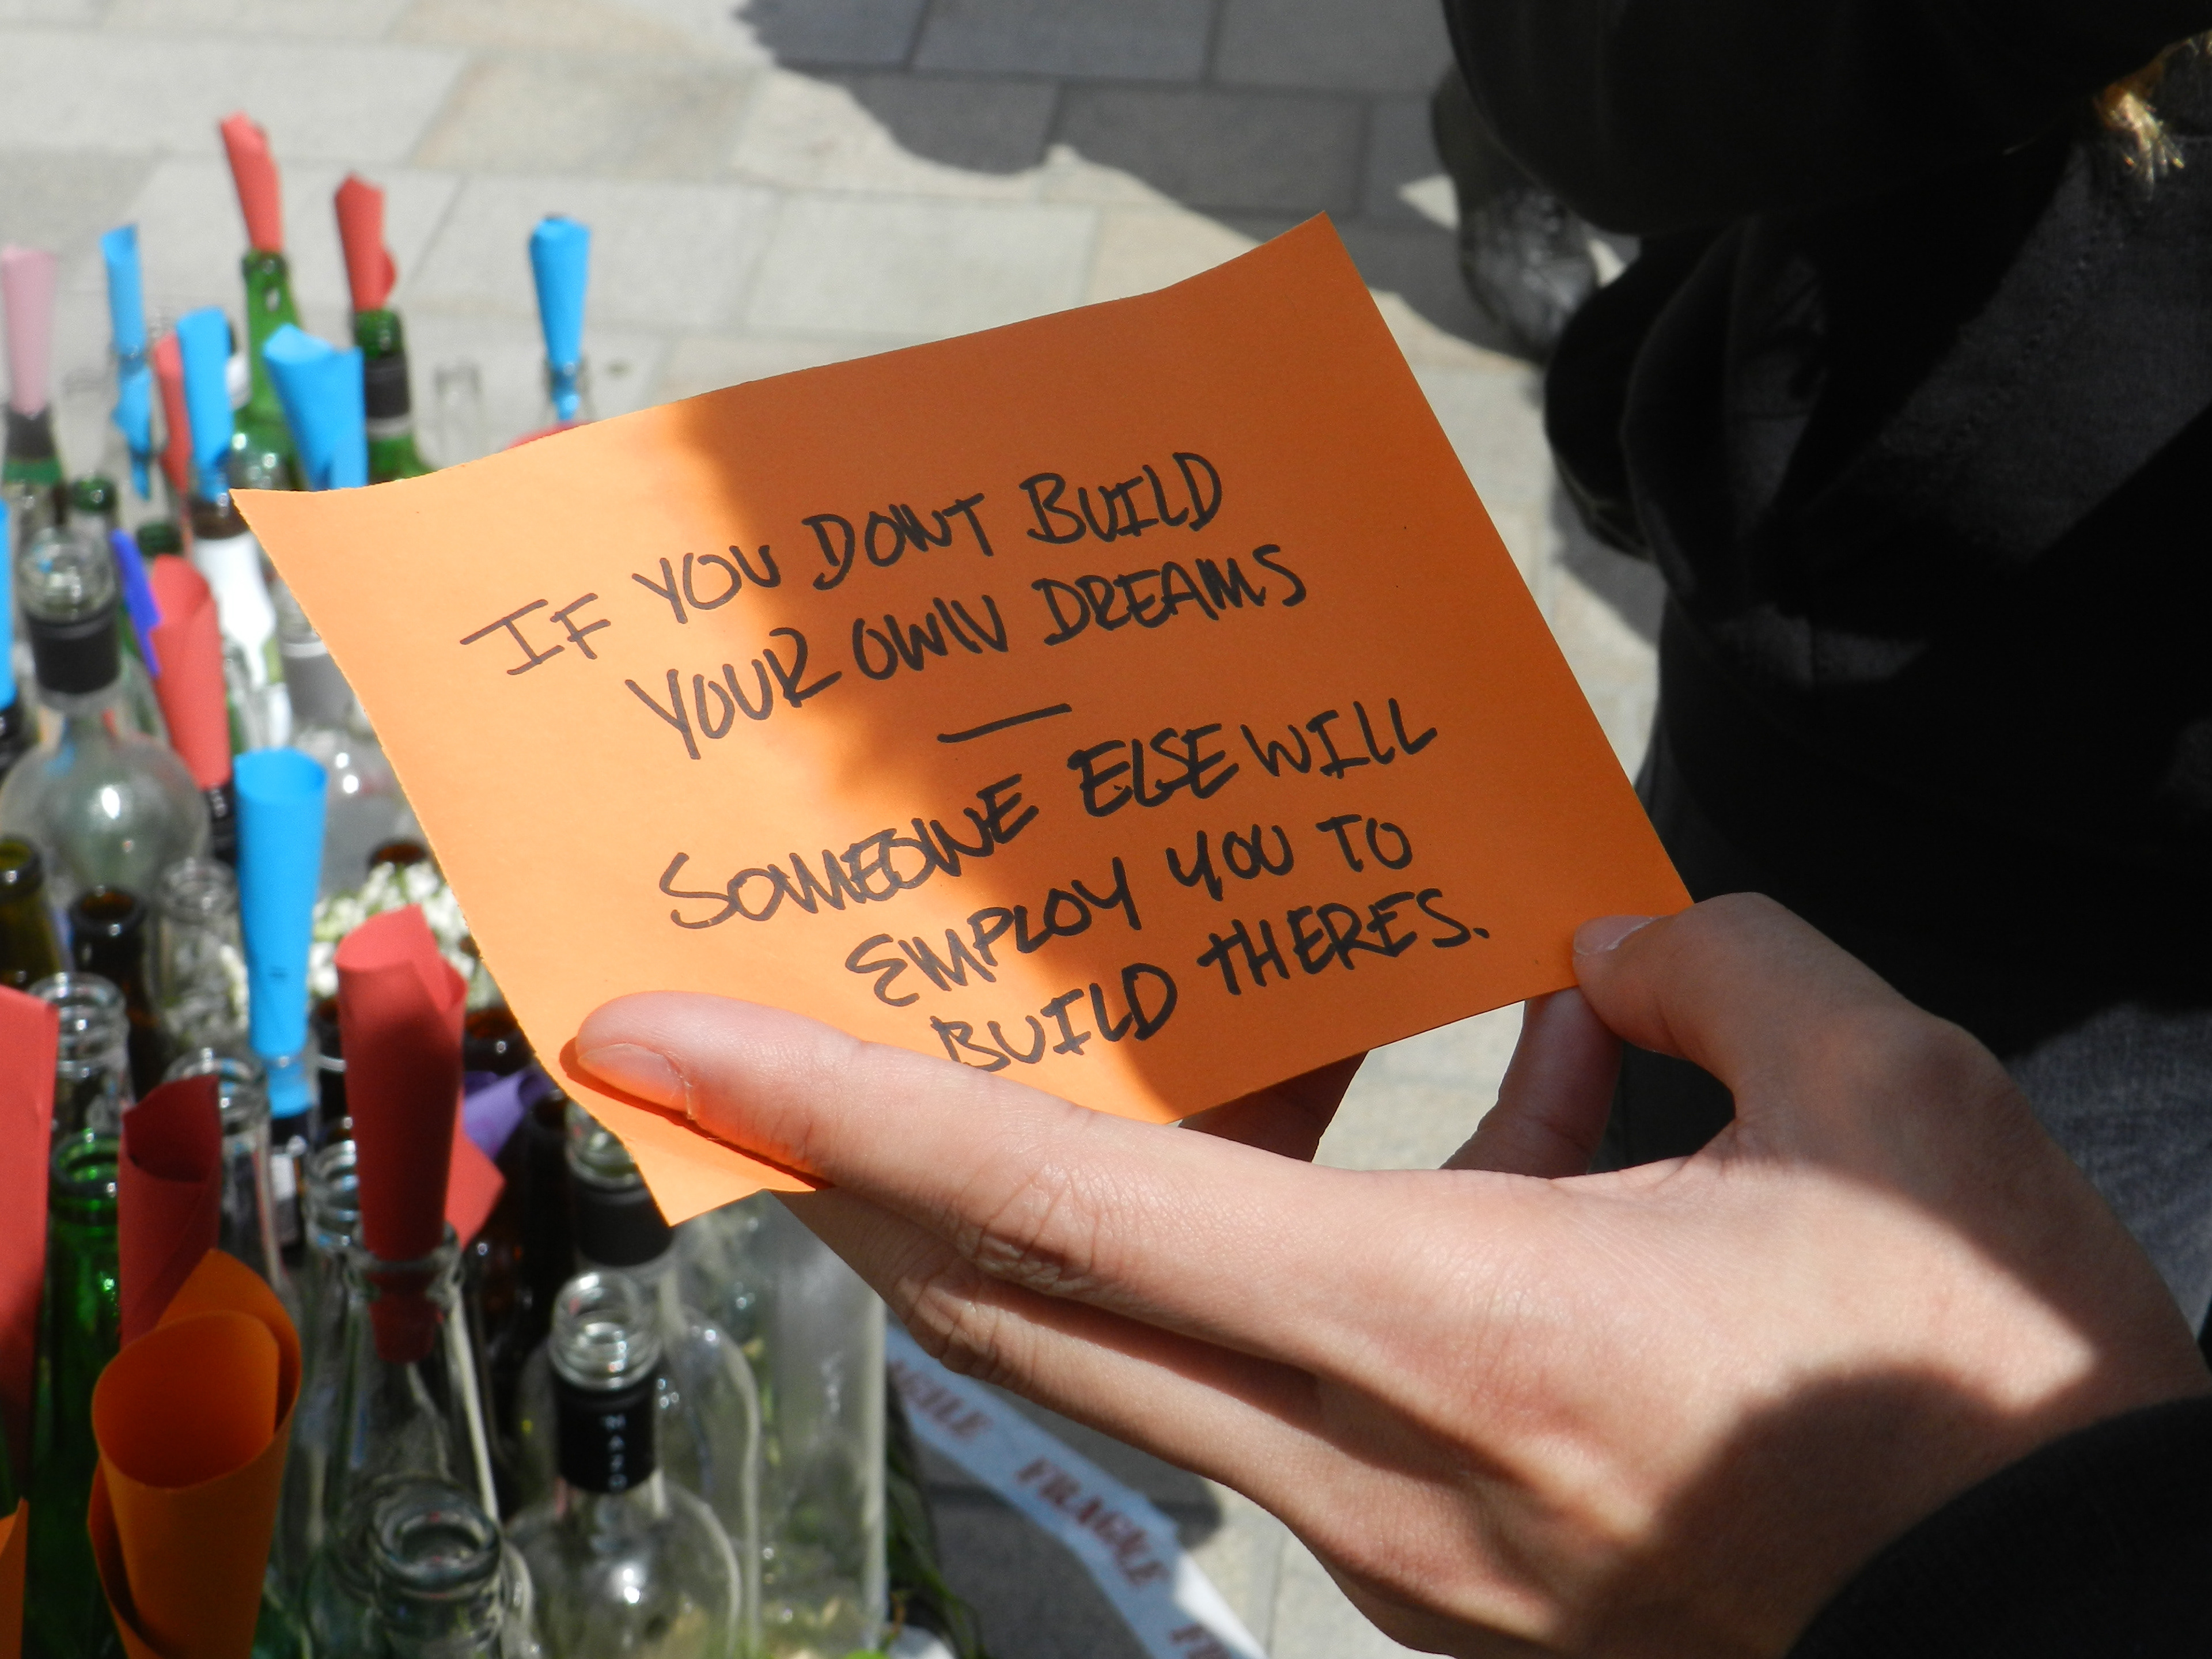 IF YOU DONT BUILD
YOUR OWN DREAMS
—
SOMEONE ELSE WILL
EMPLOY YOU TO
BUILD THERES.
FRAGILE